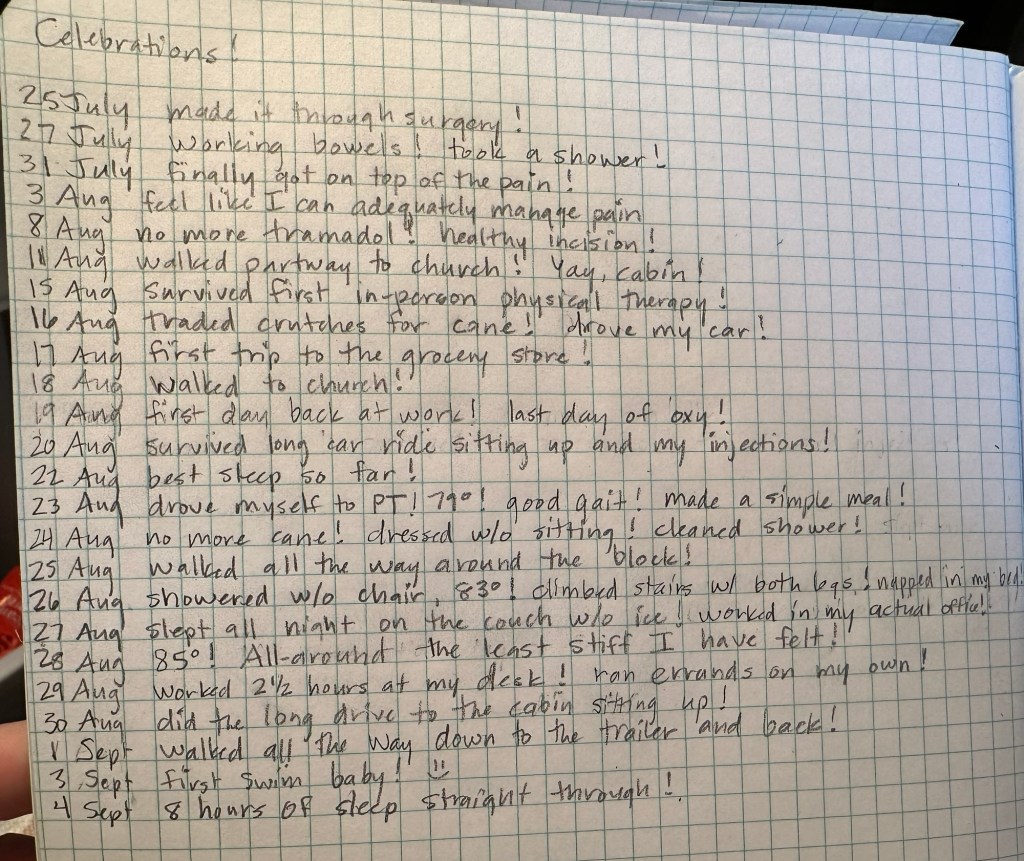 Celebrations!
25 July made it through surgery!
27 July working bowels! took a shower!
31 July finally got on top of the pain!
3 Aug feel like I can adequately manage pain
8 Aug no more tramadol! healthy incision!
11 Aug walked partway to church! Yay, cabin!
15 Aug survived first in-person physical therapy!
16 Aug traded crutches for cane! drove my car!
17 Aug first trip to the grocery store!
18 Aug walked to church!
19 Aug first day back at work! last day of oxy!
20 Aug survived long car ride sitting up and my injections!
22 Aug best sleep so far!
23 Aug drove myself to PT! 79°! good gait! made a simple meal!
24 Aug no more cane! dressed w/o sitting! cleaned shower!
25 Aug walked all the way around the block!
26 Aug showered w/o chair, 83°! climbed stairs w/ both legs! napped in my bed!
27 Aug slept all night on the couch w/o ice! worked in my actual office!
28 Aug 85°! All-around the least stiff I have felt!
29 Aug worked 2½ hours at my desk! ran errands on my own!
30 Aug did the long drive to the cabin sitting up!
1 Sept walked all the way down to the trailer and back!
3 Sept first swim baby! :)
4 Sept 8 hours of sleep straight through!